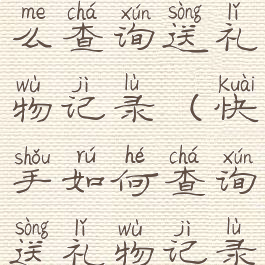 me chá xún sòng lǐ
么查询送礼
wù jì lù kuài
物记录（快
shǒu rú hé chá xún
手如何查询
sòng lǐ wù jì lù
送礼物记录